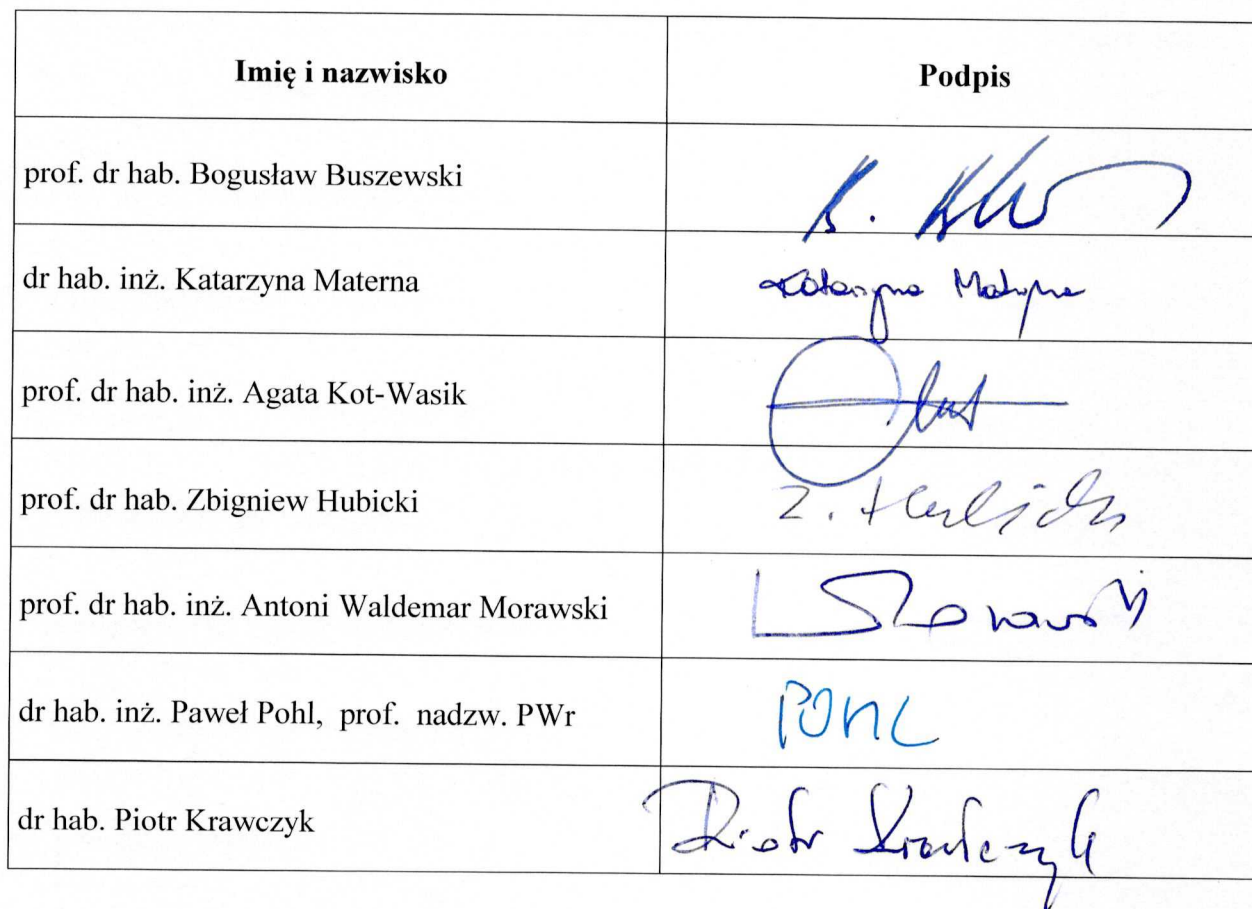 Imię i nazwisko Podpis
prof. dr hab. Bogusław Buszewski
dr hab. inż. Katarzyna Materna Katarzyna Materna
prof. dr hab. inż. Agata Kot-Wasik
prof. dr hab. Zbigniew Hubicki Z. Hubicki
prof. dr hab. inż. Antoni Waldemar Morawski
dr hab. inż. Paweł Pohl, prof. nadzw. PWr POHL
dr hab. Piotr Krawczyk Piotr Krawczyk